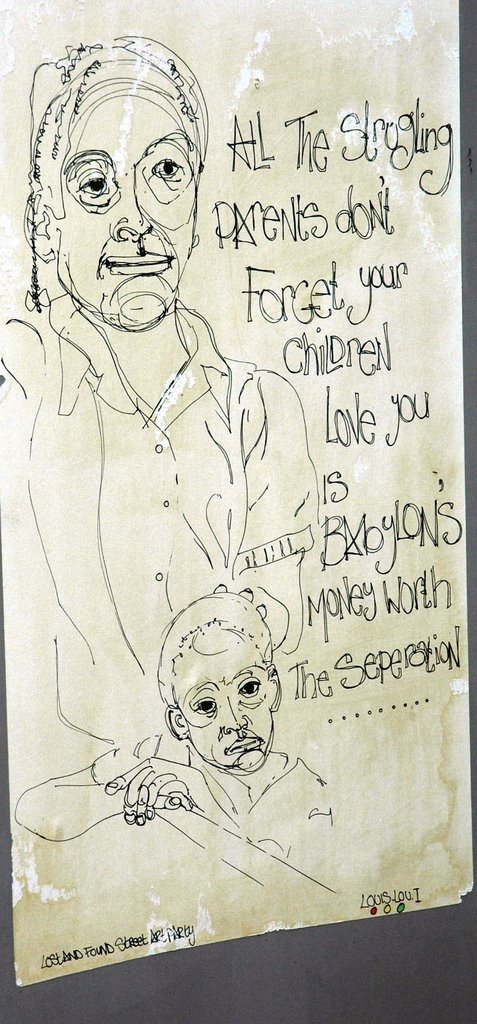 All The strugling
parents don't
Forget your
children
Love you
is
Babylon's
money worth
The seperation
.........
Louis.Lou.I
Lost and Found Street Art Party